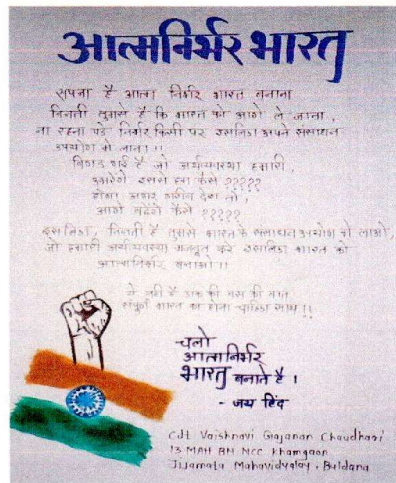 आत्मनिर्भर भारत
सपना है आत्म निर्भर भारत बनाना
विनती तुमसे है कि भारत को आगे ले जाना,
ना रहना पड़े निर्भर किसी पर इसलिए अपने संसाधन
उपयोग में लाना !!
बिगड़ गई है जो अर्थव्यवस्था हमारी,
उभरेंगे इससे हम कैसे ?????
होगा अगर गरीब देश तो,
आगे बढ़ेंगे कैसे ?????
इसलिए, विनती है तुमसे भारत के संसाधन उपयोग में लाओ,
जो हमारी अर्थव्यवस्था मजबूत करे इसलिए भारत को
आत्मनिर्भर बनाओ !!
ये नहीं है एक की बस की बात
संपूर्ण भारत का होना चाहिए साथ !!
चलो
आत्मनिर्भर
भारत बनाते है ।
- जय हिंद
Cdt Vaishnavi Gajanan Chaudhari
13 MAH BN NCC Khamgaon
Jijamata Mahavidyalay . Buldana